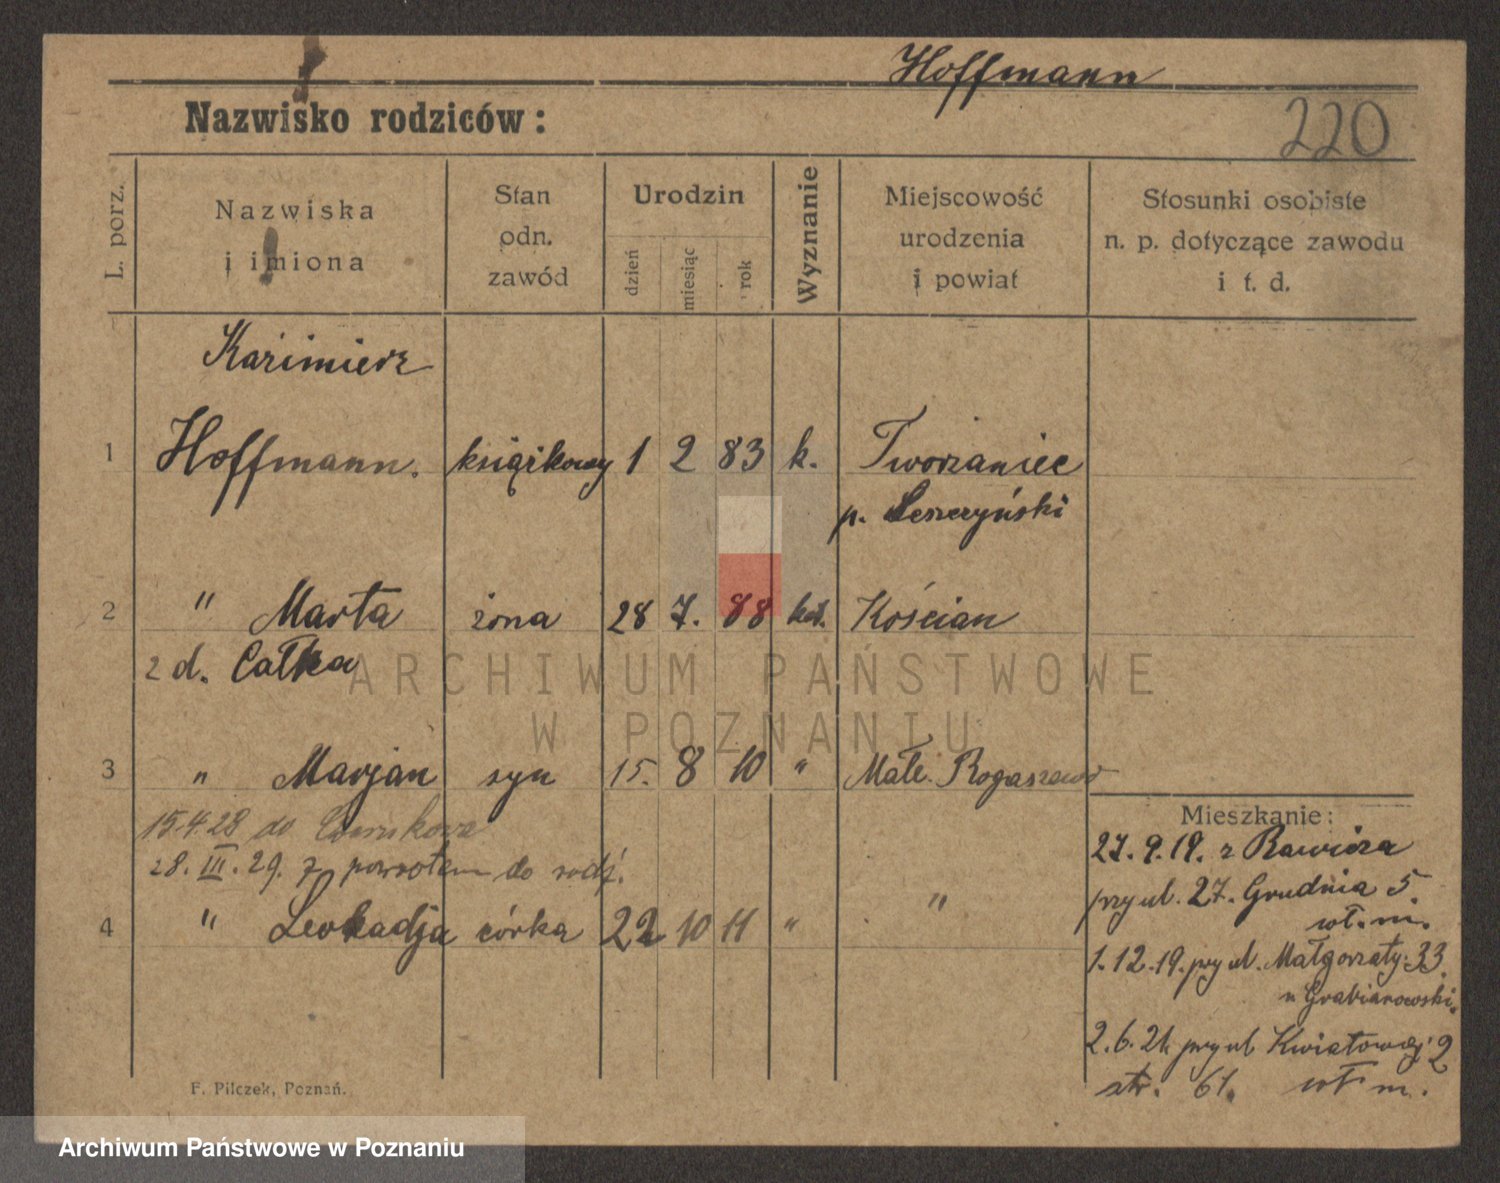 Hoffmann
Nazwisko rodziców:
220
L. porz.
Nazwiska
i imiona
Stan
odn.
zawód
Urodzin
dzień
miesiąc
rok
Wyznanie
Miejscowość
urodzenia
i powiat
Stosunki osobiste
n. p. dotyczące zawodu
i t. d.
Kazimierz
1 Hoffmann. książkowy 1 2 83 k. Tworzaniec
p. Leszczyński
2 " Marta żona 28 7. 88 kat. Kościan
z d. Całka
3 " Marjan syn 15. 8 10 " Małe. Rogaszewo
15.4.28 do
28. III. 29. z powrotem do rodz.
4 " Leokadja córka 22 10 11 " "
Mieszkanie:
27. 9. 19. z Rawicza
przy ul. 27. Grudnia 5
wł. m.
1. 12. 19. przy ul. Małgorzaty. 33.
u Grabianowski.
2. 6. 21. przy ul Kwiatowej 2
str. 61. wł m.
F. Pilczek, Poznań.
ARCHIWUM PAŃSTWOWE
W POZNANIU
Archiwum Państwowe w Poznaniu